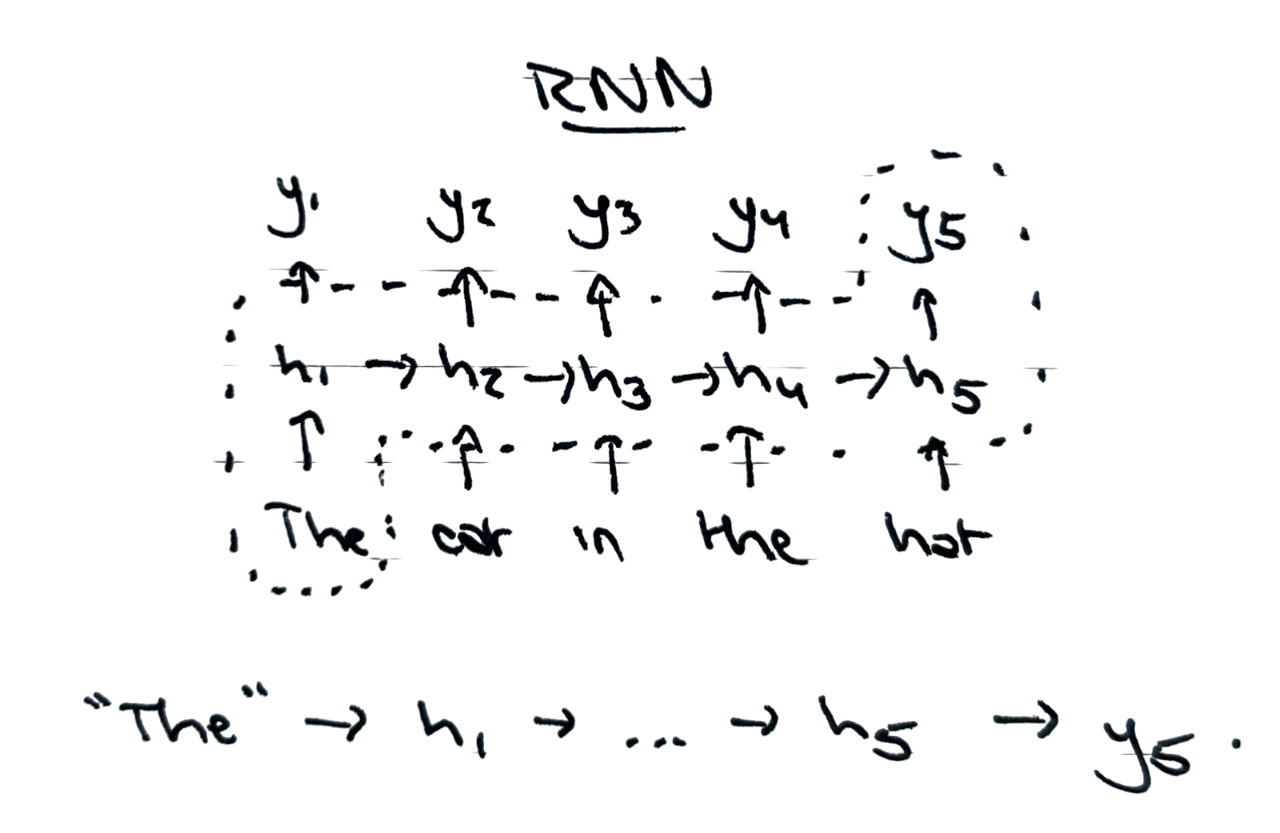 RNN
y1 y2 y3 y4 y5
h1 → h2 → h3 → h4 → h5
The cat in the hat
"The" → h1 → ... → h5 → y5.